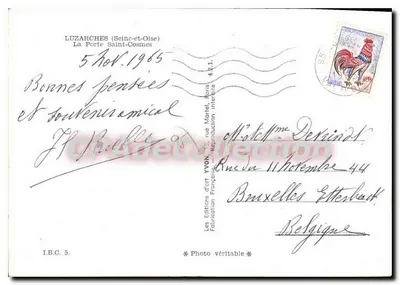 LUZARCHES (Seine-et-Oise)
La Porte Saint-Cosmes
5 Nov. 1965
Bonnes pensées
et souvenir amical
Les Editions d'art YVON, rue Martel, Paris
Fabrication Française, Reproduction interdite
Mr et Mme Devindt
Rue du 11 Novembre 44
Bruxelles Etterbeek
Belgique
I.B.C. 5.
* Photo véritable *